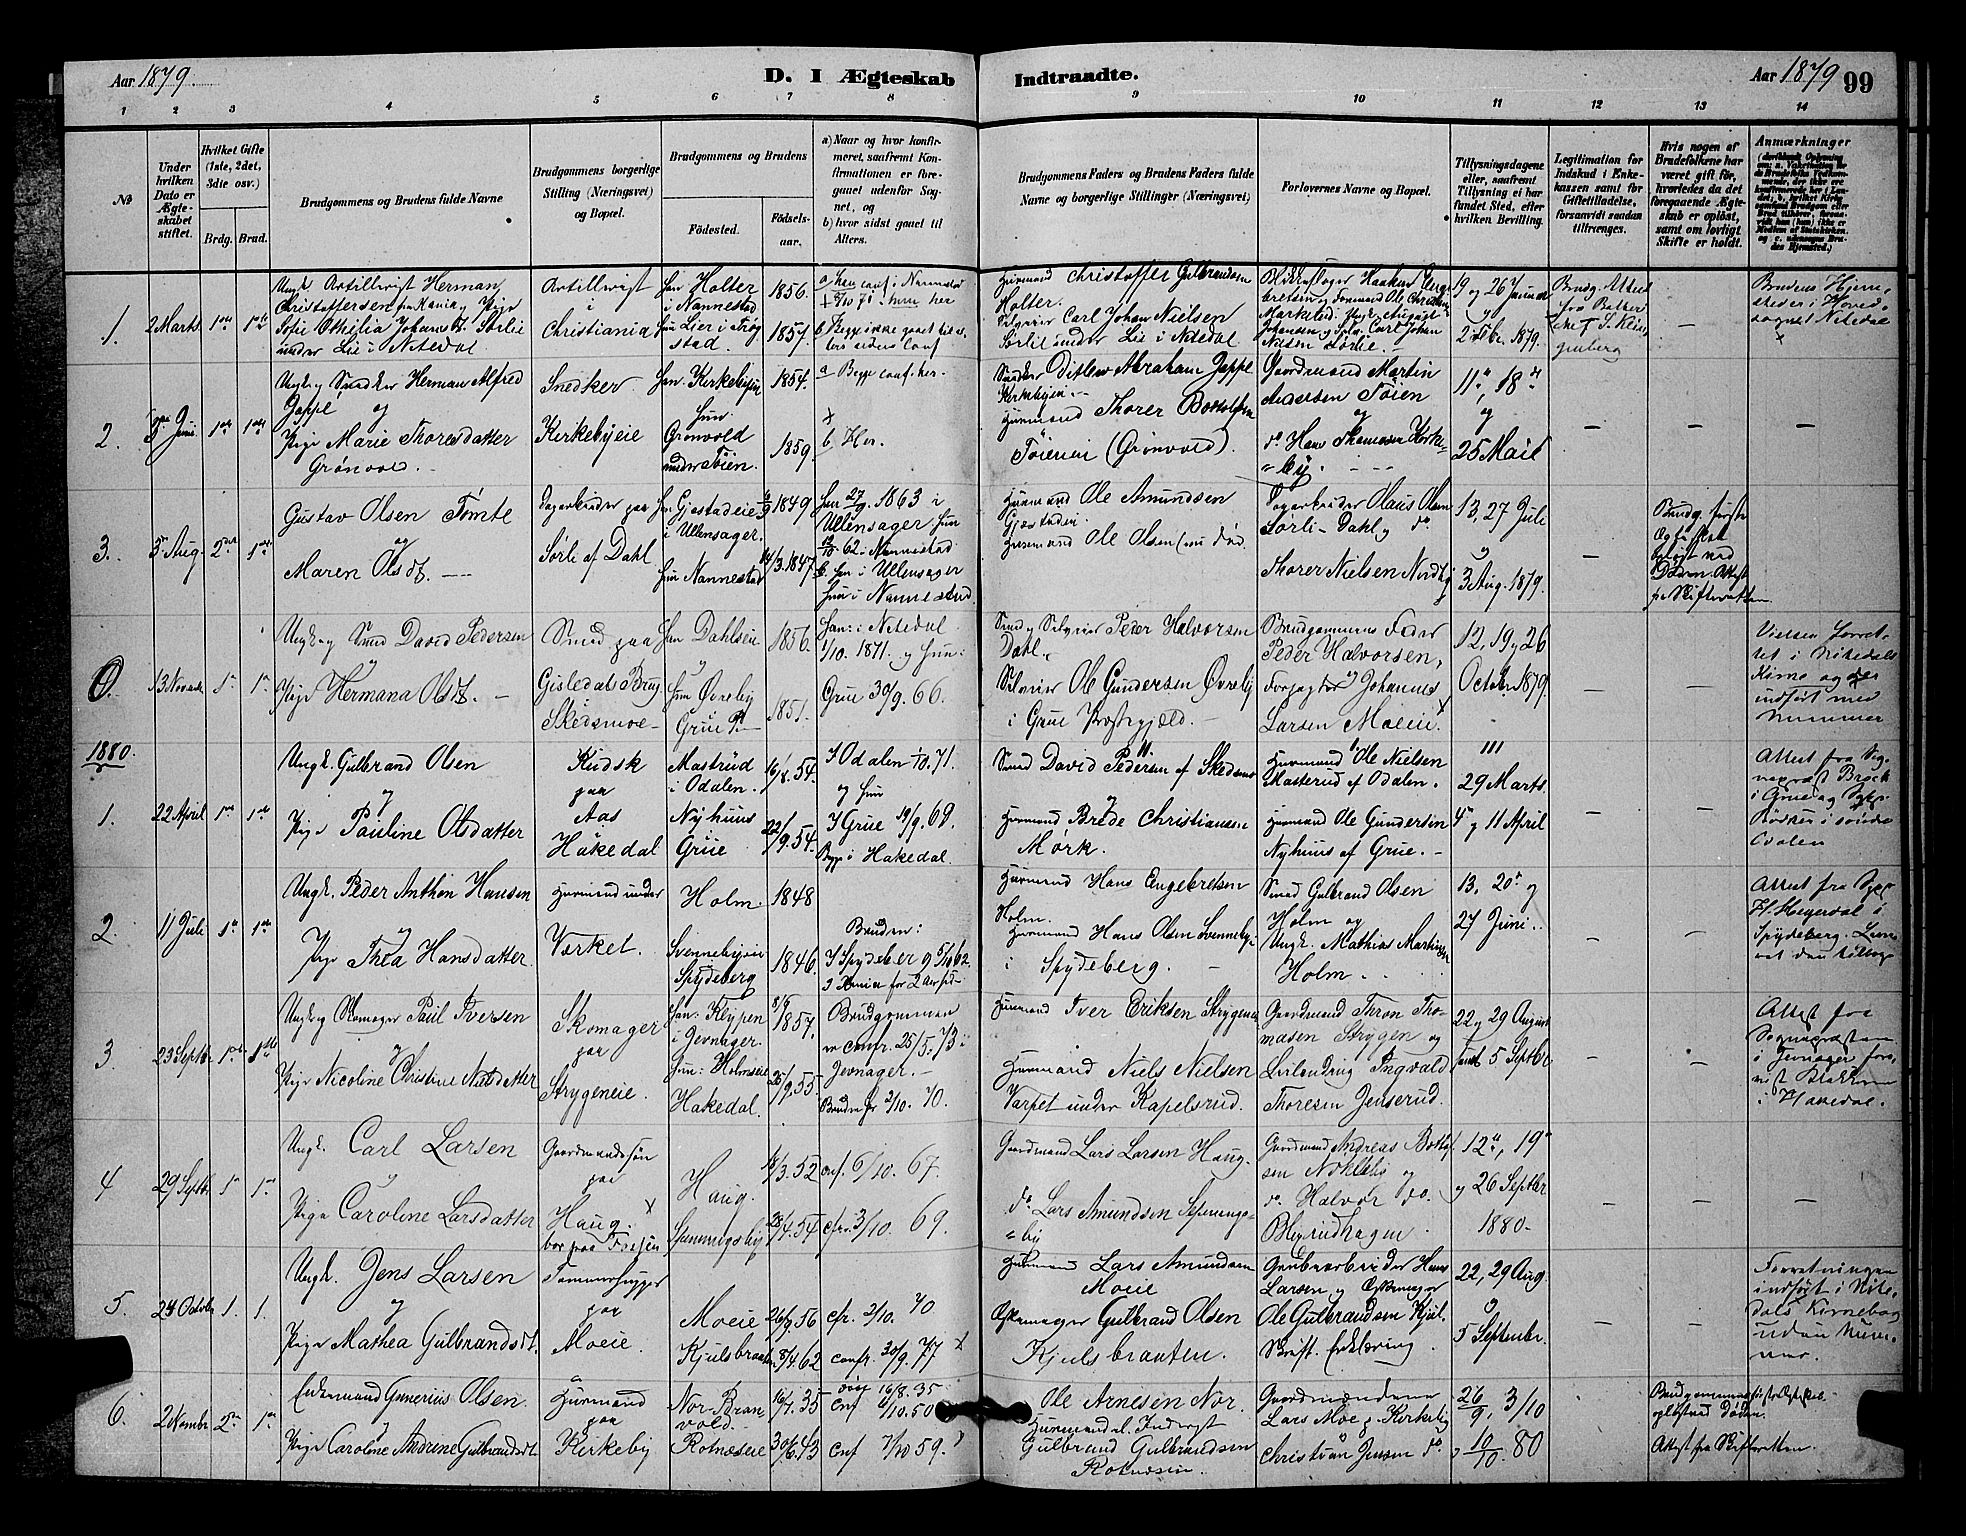 Aar 1879.
D. I Ægteskab
Indtraadte.
Aar 1879
99
1 2 3 4 5 6 7 8 9 10 11 12 13 14
No
Under hvilken Dato er Ægteskabet stiftet.
Hvilket Gifte (1ste, 2det, 3die osv.)
Brdg. Brud.
Brudgommens og Brudens fulde Navne
Brudgommens borgerlige Stilling (Næringsvei) og Bopæl.
Brudgommens og Brudens
Födested.
Födselsaar.
a) Naar og hvor konfirmeret, saafremt Konfirmationen er foregaaet udenfor Sognet, og
b) hvor sidst gaaet til Alters.
Brudgommens Faders og Brudens Faders fulde Navne og borgerlige Stillinger (Næringsvei)
Forlovernes Navne og Bopæl.
Tillysningsdagene eller, saafremt Tillysning ei har fundet Sted, efter hvilken Bevilling.
Legitimation for Indskud i Enkekassen samt for Giftetilladelse, forsaavidt saadan tiltrænges.
Hvis nogen af Brudefolkene har været gift för, hvorledes da det foregaaende Ægteskab er oplöst, samt om lovligt Skifte er holdt.
Anmærkninger
1.
2 Marts
1ste
1ste
Ungk. Artillerist Herman
Christoffersen fra Kania og Pige
Sofie Othilia Johansdt. Sörlie
under Lie i Nitedal
Artillerist
i
Christiania
han Holter
i Nannestad
hun Lier i Trög
stad.
1856.
1857.
a han conf. i Nannestad
1/10 71. hun her
b Begge ikke gaaet til al
ters siden conf
Husmand Christoffer Gulbrandsen
Holter.
Selveier Carl Johan Nielsen
Sörlie under Lie i Nitedal
Johansen og Selv. Carl Johan
Nilsen Sörlie.
19 og 26 Januar
og
2 Febr. 1879.
Brudg. Attest
fra Batteri
chef S. Kling
enberg
Brudens Hjem
sted er i Hoved
sognet Nitedal
2.
Juni
1ste
1ste
Ungk. Snedker Herman Alfred
Jappe
og
Pige Marie Thoresdatter
Grönvold.
Snedker
Kirkebyeie
han Kirkebyeie
hun
Grönvold
under Töien.
1854.
1859.
a Begge conf. her.
b Her.
Snedker Ditlev Abraham Jappe
Kirkebyeien.
Husmand Thorer Bottolfsen
Töieneie (Grönvold).
Gaardmand Martin
Andersen Töien
og
do Hans Thomassen Kirke-
by.
11te, 18de
og
25 Mai
3.
3 Aug.
2det
1ste
Gustav Olsen Tömte
og
Maren Olsdt.
Dagarbeider paa
Sörli af Dahl
han Gjestadeie
i Ullensager.
hun Nannestad
1849
14/3. 1847.
han 27/9. 1863 i
Ullensager. hun
62 i Nannestad
b han i Ullensager
hun i Nannestad.
Husmand Ole Amundsen
Gjestadeie.
Husmand Ole Olsen (nu död
Dagarbeider Olaus Olsen
Sörli-Dahl og do
Thorer Nielsen Nordby
13, 27 Juli
og
3 Aug. 1879.
Brudg. förste
Ægteskab
oplöst ved
Döden. Attest
fra Skifteretten
0.
13 Novbr.
1ste
1ste
Ungk. og Smed David Pedersen
og
Pige Hermana Olsdt.
Smed paa
Gisledals Brug
Skedsmoe
han Dahlseie
og
hun Övreby
Grue
1856.
1851.
han i Nitedal
1/10. 1871. og hun:
Grue 30/9. 66.
Smed og Selveier Peder Halvorsen
Dahl.
Selveier Ole Gundersen Övreby
i Grue Præstegjeld.
Brudgommens Fader
Peder Halvorsen,
Forpagter Johannes
Larsen Moeeie.
12, 19 og 26
October 1879.
Vielsen forret-
tet i Nitedals
Kirke og der
indfört med
Nummer
1880.
1.
22 April
1ste
1ste
Ungk. Gulbrand Olsen
og
Pige Pauline Olsdatter
Kudsk
paa
Aas
Hakedal
Mastrud
i Odalen.
Nyhuus
Grue
16/8. 54.
22/9. 54.
I Odalen 1/10. 71.
og hun
I Grue 19/9. 69.
Begge i Hakedal.
Smed David Pedersen af Skedsmo
Husmand Brede Christiansen
Mörk.
Husmand Ole Nielsen
Masterud af Odalen.
Husmand Ole Gundersen
Nyhuus af Grue.
29 Marts.
4de og 11 April
Attest fra Sog-
nepræst Brock
i Grue og Sgpr.
i söndre
Odalen
2.
11 Juli
1ste
1ste
Ungk. Peder Anthon Hansen
og
Pige Thea Hansdatter.
Husmand under
Værket.
Holm.
Svennebyeie
Spydeberg
1848
1846.
Bruden:
I Spydeberg 5/10 62.
I Xania for 2 Aar sid
Husmand Hans Engebretsen
Holm.
Husmand Hans Olsen Svenneby-
i Spydeberg.
Smed Gulbrand Olsen
Holm og
Ungk. Mathias Martinsen
Holm.
13, 20de og
27 Juni.
Attest fra Sgpr.
H. Meyerdal i
Spydeberg.
3
23 Septbr.
1ste
1ste
Ungk. og Skomager Paul Iversen
og
Pige Nicoline Christine Nilsdatter
Skomager
paa
Strygeneie.
han: Klypen
i Jevnager.
hun: Holmseie
Hakedal.
8/6 1857,
25/9. 55.
Brudgommen
er confr. 25/5. 73 i
Jevnager.
Bruden fr 2/10. 70.
Husmand Iver Eriksen Strygeneie
Husmand Niels Nielsen
Varpet under Kapelsrud.
Gaardmand Thron Tho-
masen Strygen og
Leilending Ingvald
Thoresen Jenserud.
22 og 29 August
samt 5 Septbr.
Attest fra
Sognepræsten
i Jevnager for-
evist Klokkeren
i Hakedal.
4
29 Septbr.
1ste
1ste
Ungk. Carl Larsen
og
Pige Caroline Larsdatter
Gaardmandssön
paa
Haug.
bor paa Fossen
Haug.
Spenningsby
18/3. 52
28/4. 54
conf. 6/10. 67.
cfr. 3/10. 69.
Gaardmand Lars Larsen Haug.
do Lars Amundsen Spennings-
by
Gaardmand Andreas Bottolf
sen Nökleby og
do Halvor do.
Blegerudhagen.
12te, 19de
og 26 Septbr
1880
5.
24 Octobr
1.
1.
Ungk. Jens Larsen
og
Pige Mathea Gulbrandsdt.
Tömmerhugger
paa
Moeie.
Moeie
Kjulsbraaten
26/9. 56
8/4. 62
cfr. 2/10. 70
confr. 30/9. 77
Husmand Lars Amundsen
Moeie
Skomager Gulbrand Olsen
Kjulsbraaten.
Grubearbeider Hans
Larsen og Skomager
Ole Gulbrandsen Kjul.
Skrift. Erklæring.
22, 29 Aug.
og
5 September.
Forretningen
indfört i Nite-
dals Kirkebog
uden Num-
mer.
6.
2 Novembr
2det
1ste
Enkemand Gunerius Olsen.
og
Pige Caroline Andrine Gulbrandsdt.
Husmand
paa
Kirkeby
Nor-Bran-
vold.
Rotneseie
16/7. 35
30/6. 43
döbt 16/8. 35
Conf 6/10. 50
Conf 7/10 59.
Ole Arnesen Nor.
Husmand Inderst
Gulbrand Gulbrandsen
Rotneseie.
Gaardmændene
Lars Moe og Kirkeby
Christian Jensen do.
26/9, 3/10
og 10/10. 80
Brudgommens förste Ægteskab
oplöst ved Döden.
Attest fra Skifteretten.